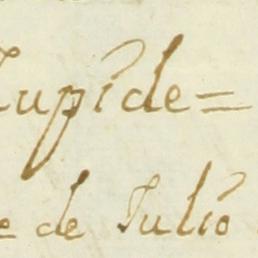 Lupide=
e de Julio